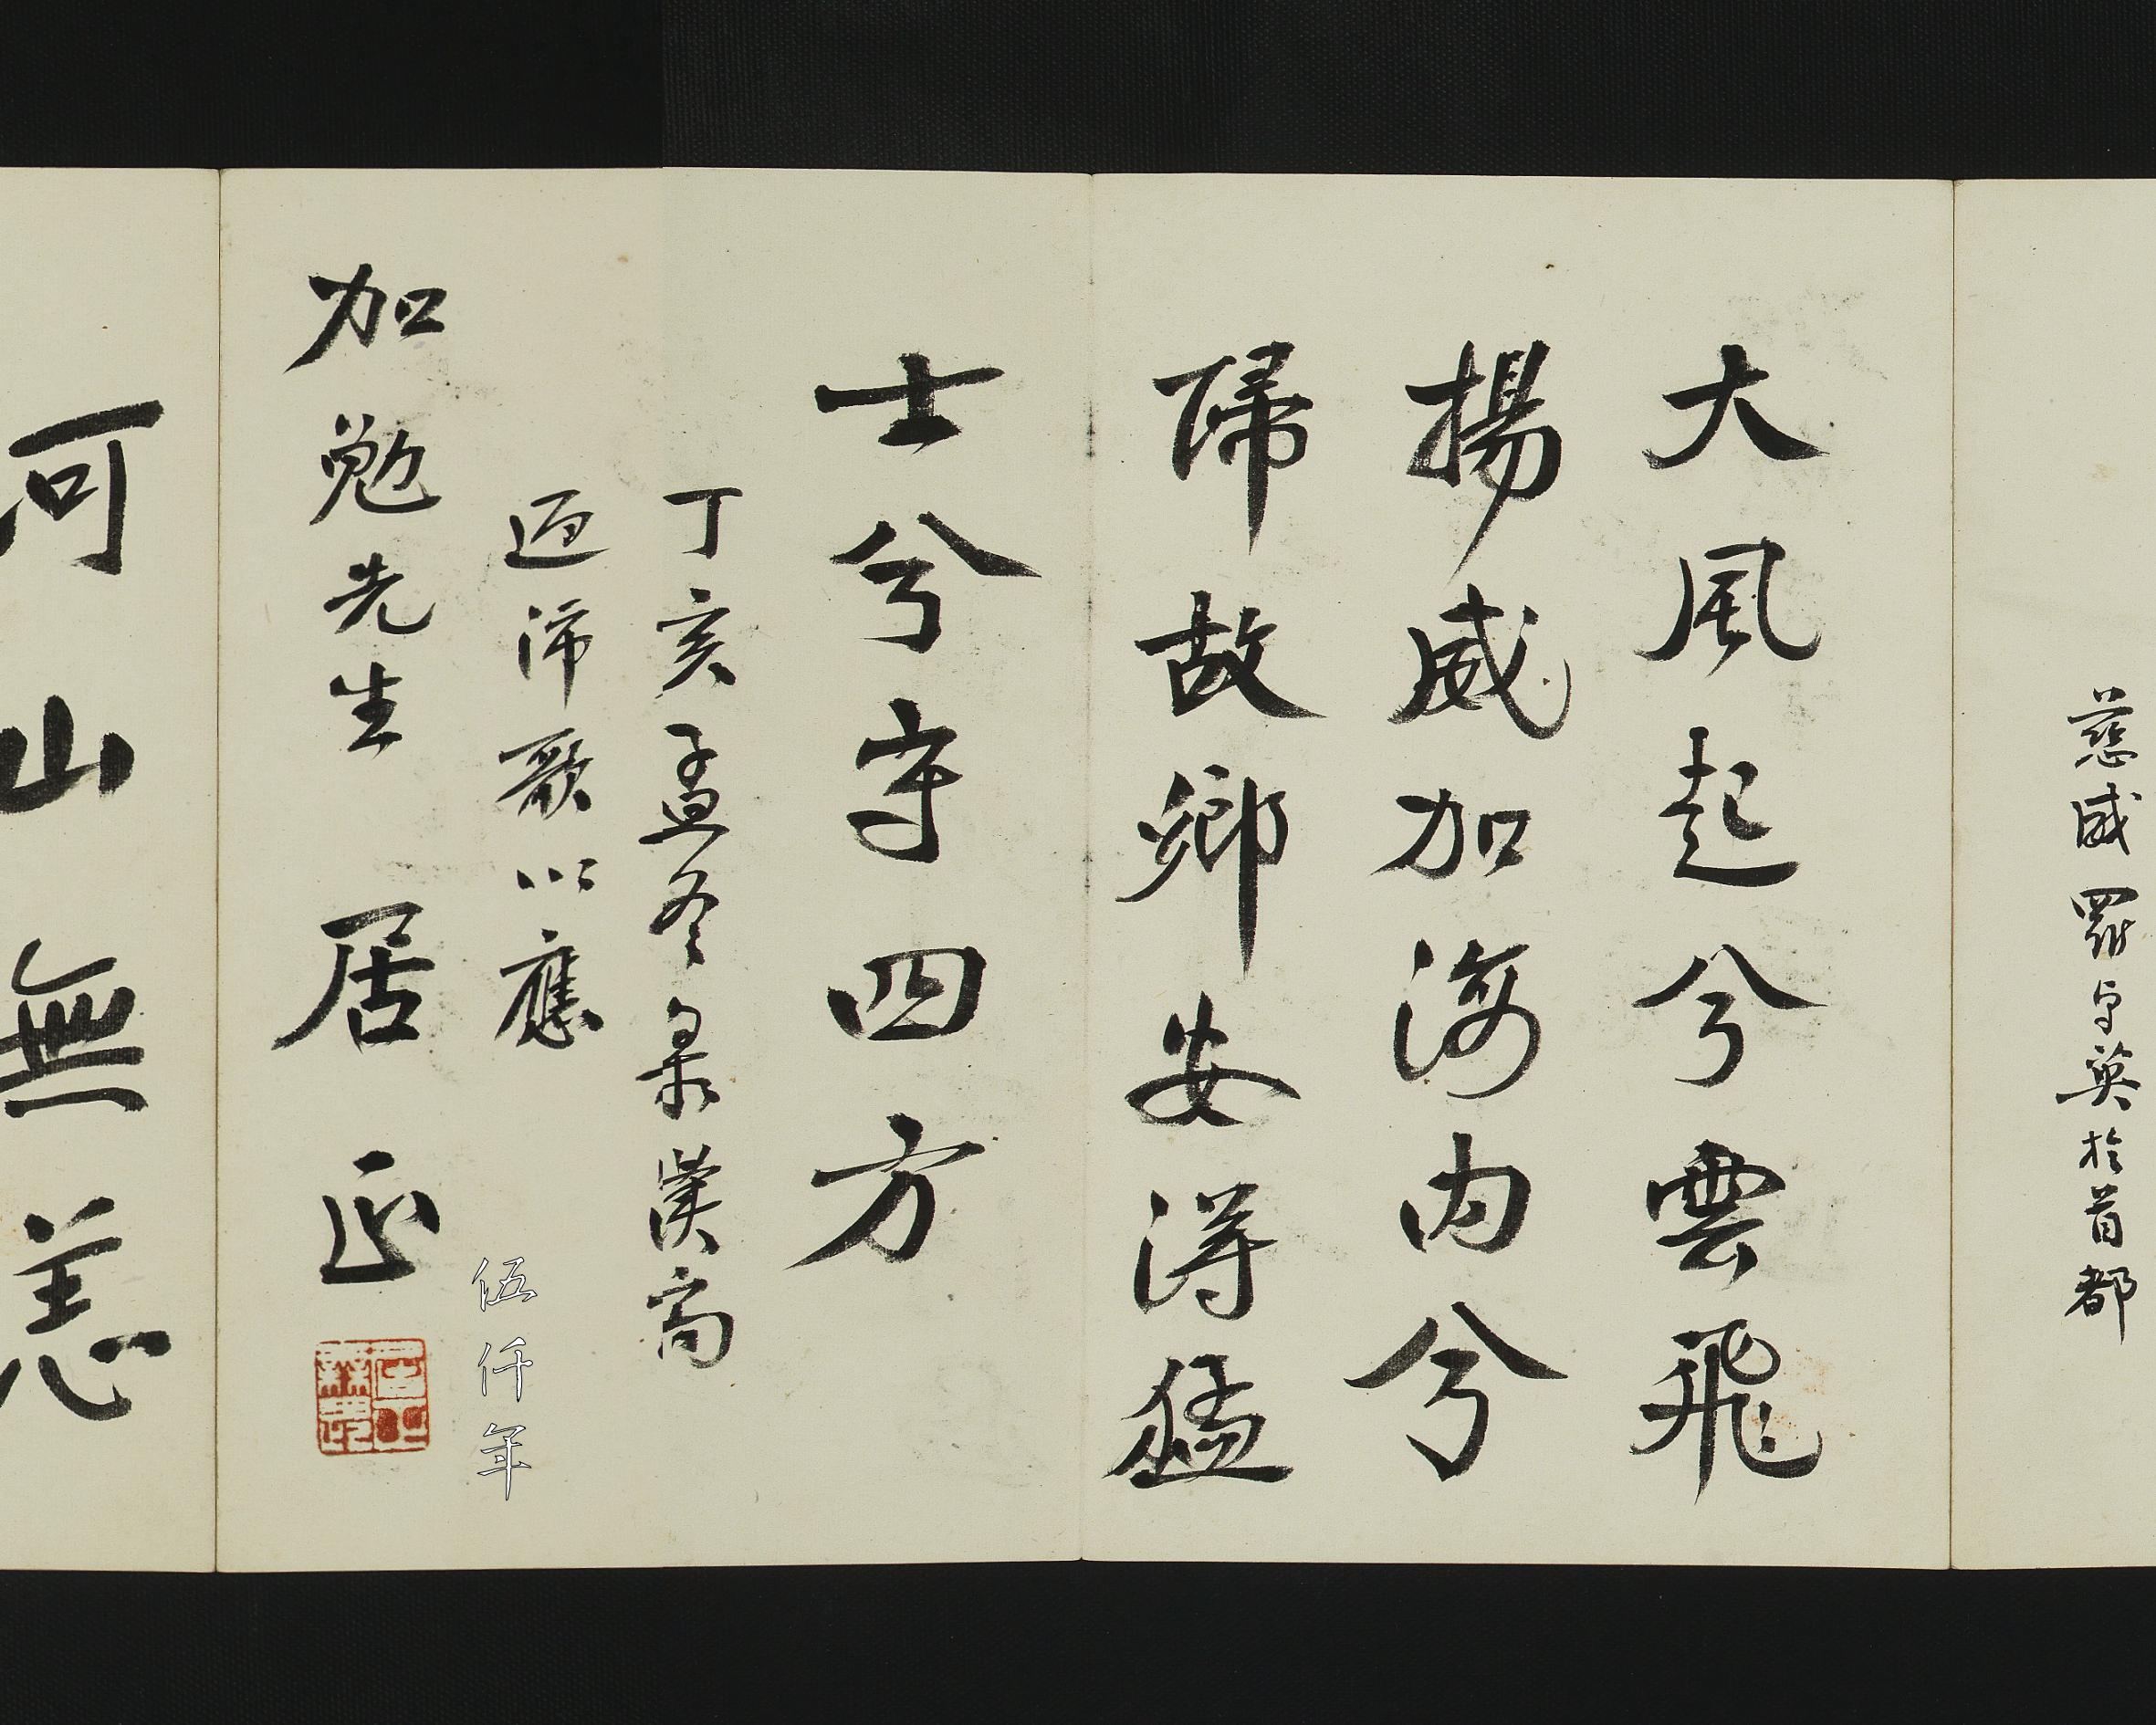 慈威羅卓英於首都
大風起兮雲飛
揚威加海内兮
歸故鄉安得猛
士兮守四方
丁亥孟冬录漢高
過沛歌以應
加勉先生 居正
伍仟年
河山無恙